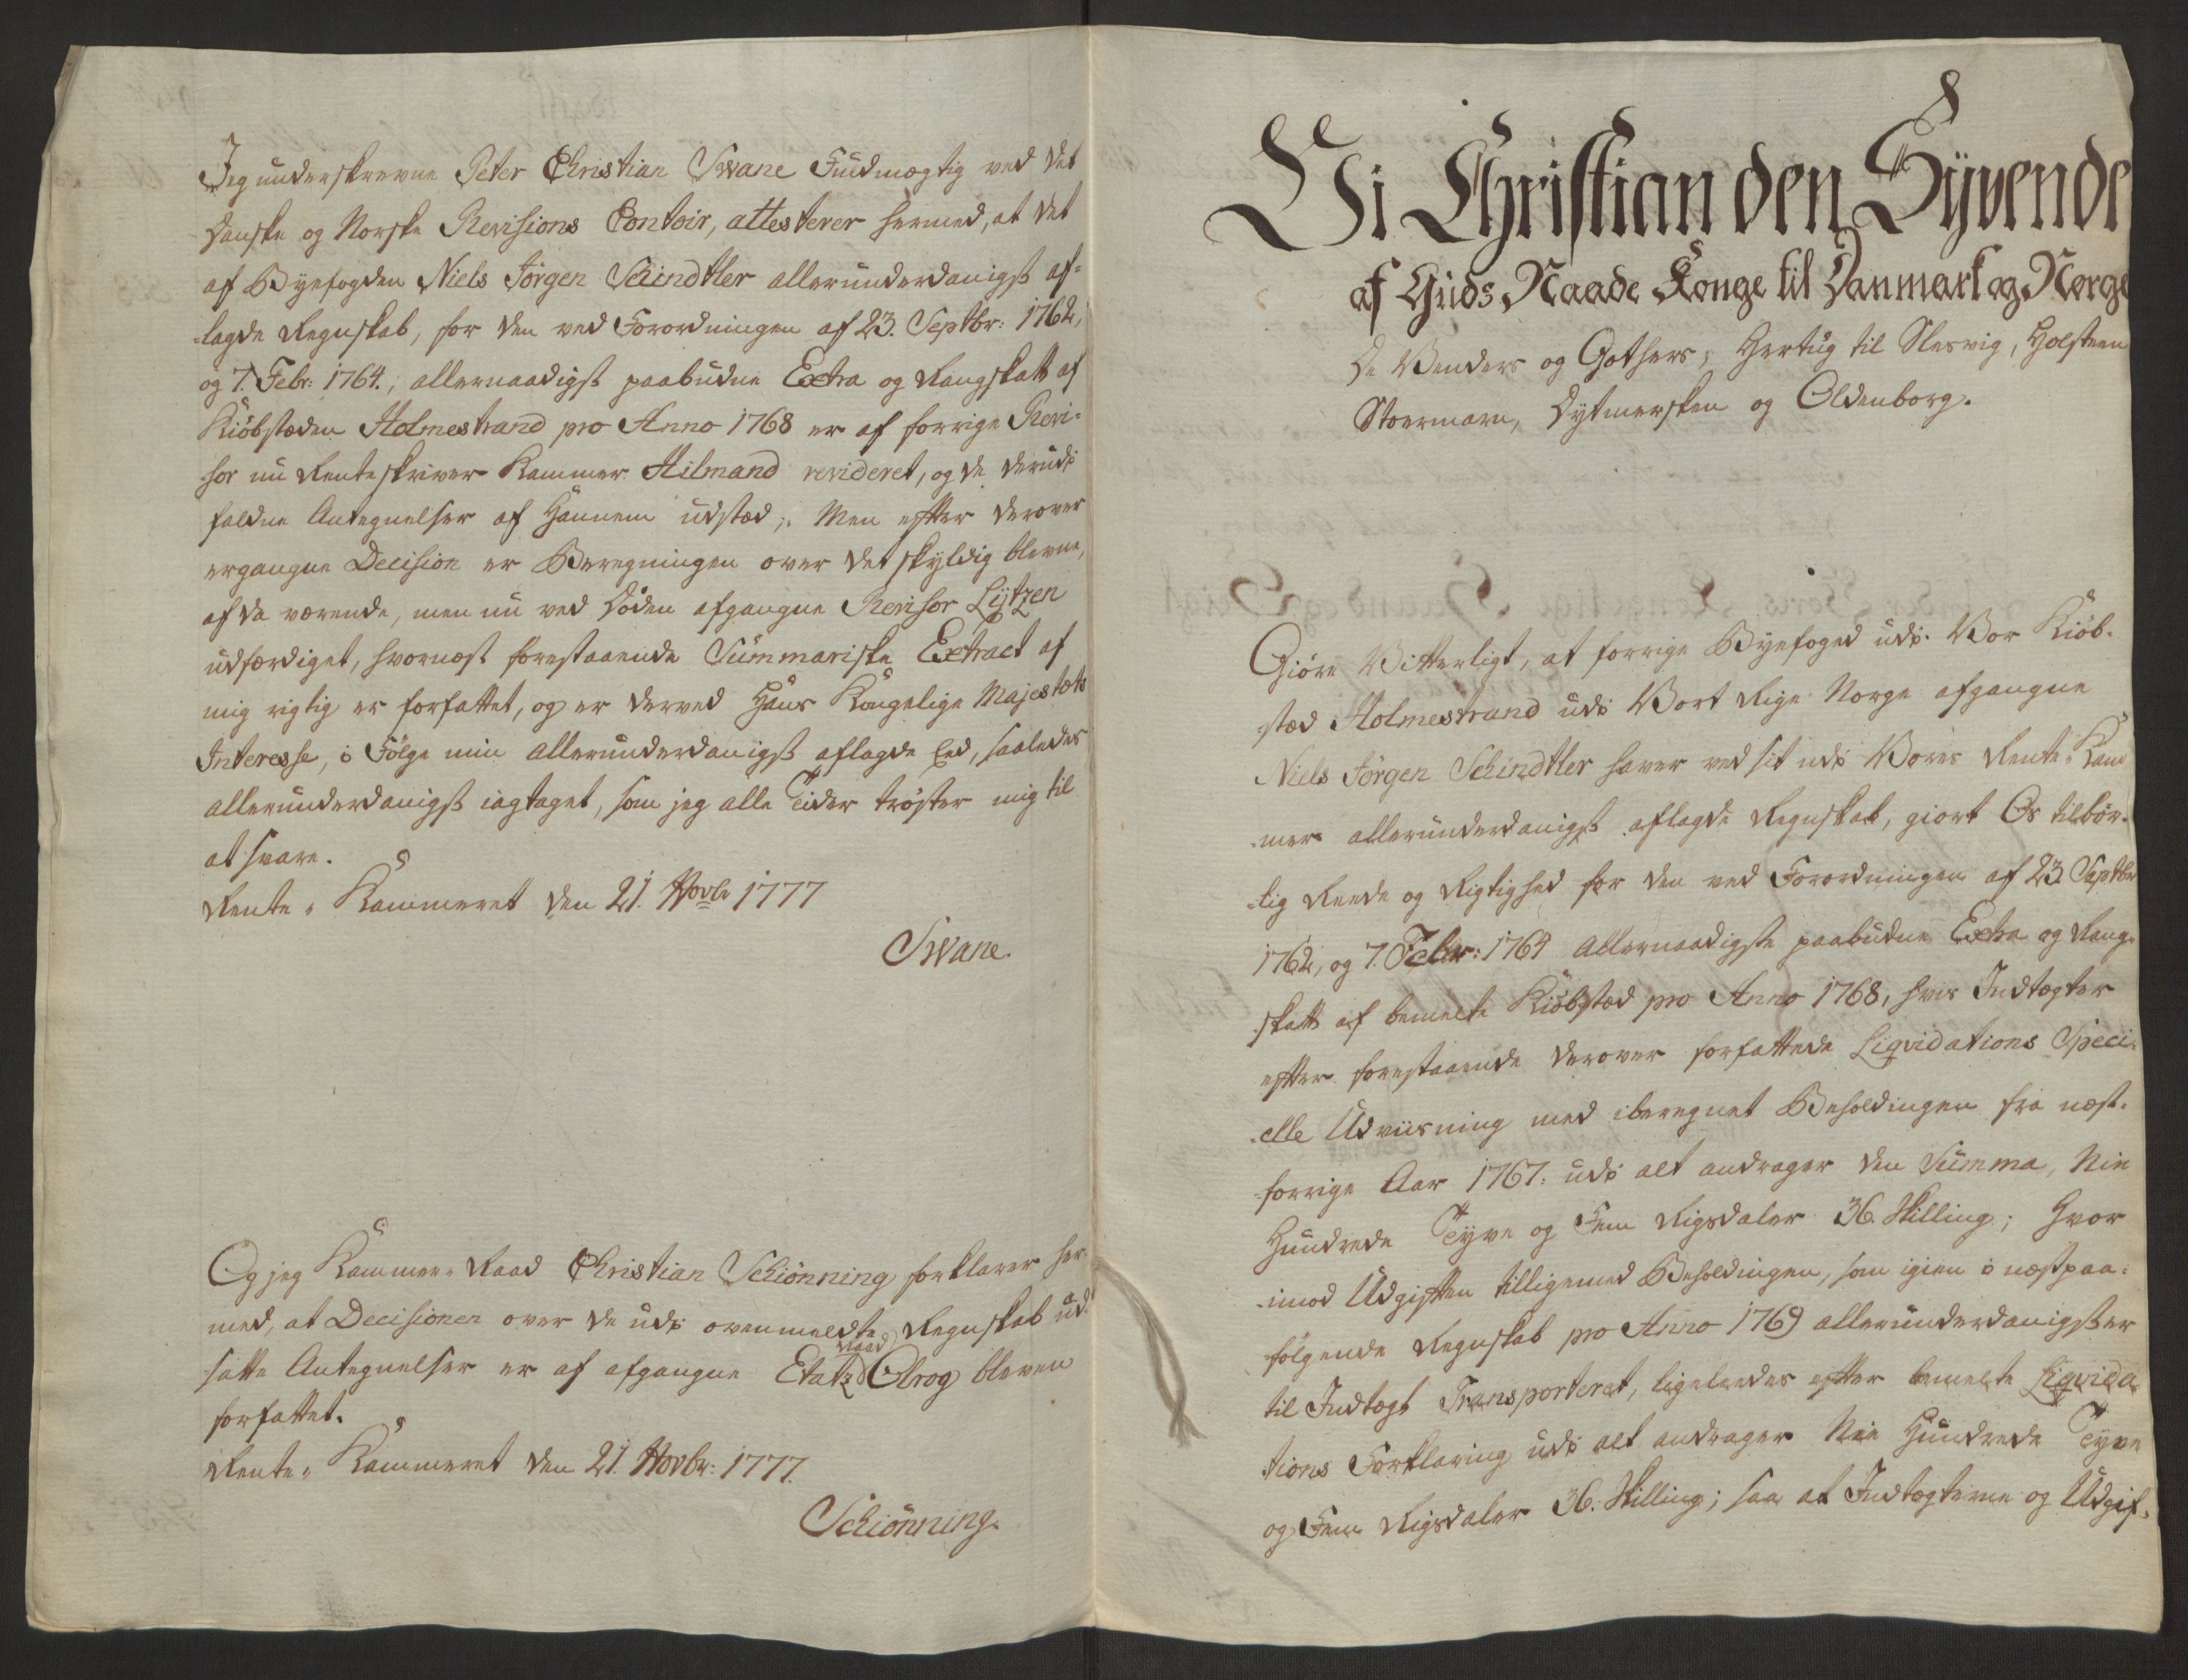 Jeg underskrevne Peter Christian Swane Fuldmægtig ved det
Danske og Norske Revisions Contoir, attesterer hermed, at det
af Byefogden Niels Jörgen Schindtler allerunderdanigst af-
-lagde Regnskab, for den ved Forordningen af 23. Septbr: 1762,
og 7. Febr: 1764., allernaadigst paabudne Extra og Rangskatt af
Kiöbstæden Holmestrand pro Anno 1768 er af forrige Revi-
-sor nu Renteskriver Kammer Hilmand revideret, og de derudi
faldne Antegnelser af Hannem udstæd; Men efter derover
ergangne Decision er Beregningen over det skyldig blevne,
af da værende, men nu ved Döden afgangne Revisor Lÿtzen
udfærdiget, hvornæst forestaaende Summariske Extract af
mig rigtig er forfattet, og er derved Hans Kongelige Majestæts
Interesse, i Fölge min allerunderdanigst aflagde Eed, saaledes
allerunderdanigst iagtaget, som jeg alle Tider tröster mig til
at svare.
Rente-Kammeret den 21. Novbr 1777
Swane.
Og jeg Kammer-Raad Christian Schiönning forklarer her-
med, at Decisionen over de udi ovenmeldte Regnskab ud-
satte Antegnelser er af afgangne Etatz Raad Olrog bleven
forfattet.
Rente-Kammeret den 21. Novbr: 1777.
Schiönning.
Vi Christian den Syvende
af Guds Naade Konge til Danmark og Norge
De Venders og Gothers, Hertug til Slesvig, Holsteen
Stormarn, Dytmersken og Oldenborg.
Giöre Vitterligt, at forrige Byefoged udi Vor Kiöb-
-stæd Holmestrand udi Vort Rige Norge afgangne
Niels Jörgen Schindtler haver ved sit udi Vores Rente-Kam
-mer allerunderdanigst aflagde Regnskab, giort Os tilbör-
-lig Reede og Rigtighed for den ved Forordningen af 23. Septbr
1762, og 7. Febr: 1764 allernaadigste paabudne Extra og Rang-
skatt af bemelte Kiöbstæd pro Anno 1768, hvis Indtægter
efter forestaaende derover forfattede Liqvidations Speci-
-elle Udviisning med iberegnet Beholdingen fra næst-
-forrige Aar 1767. udi alt andrager den Summa, Nie
Hundrede Tyve og Fem Rigsdaler 36. Skilling; Hvor
-imod Udgiften tilligemed Beholdingen, som igien i næstpaa-
fölgende Regnskab pro Anno 1769 allerunderdanigst er
til Indtægt Transporteret, ligeleedes efter bemelte Liqvida-
-tions Forklaring udi alt andrager Nie Hundrede Tyve
og Fem Rigsdaler 36. Skilling; saa at Indtægterne og Udgif-